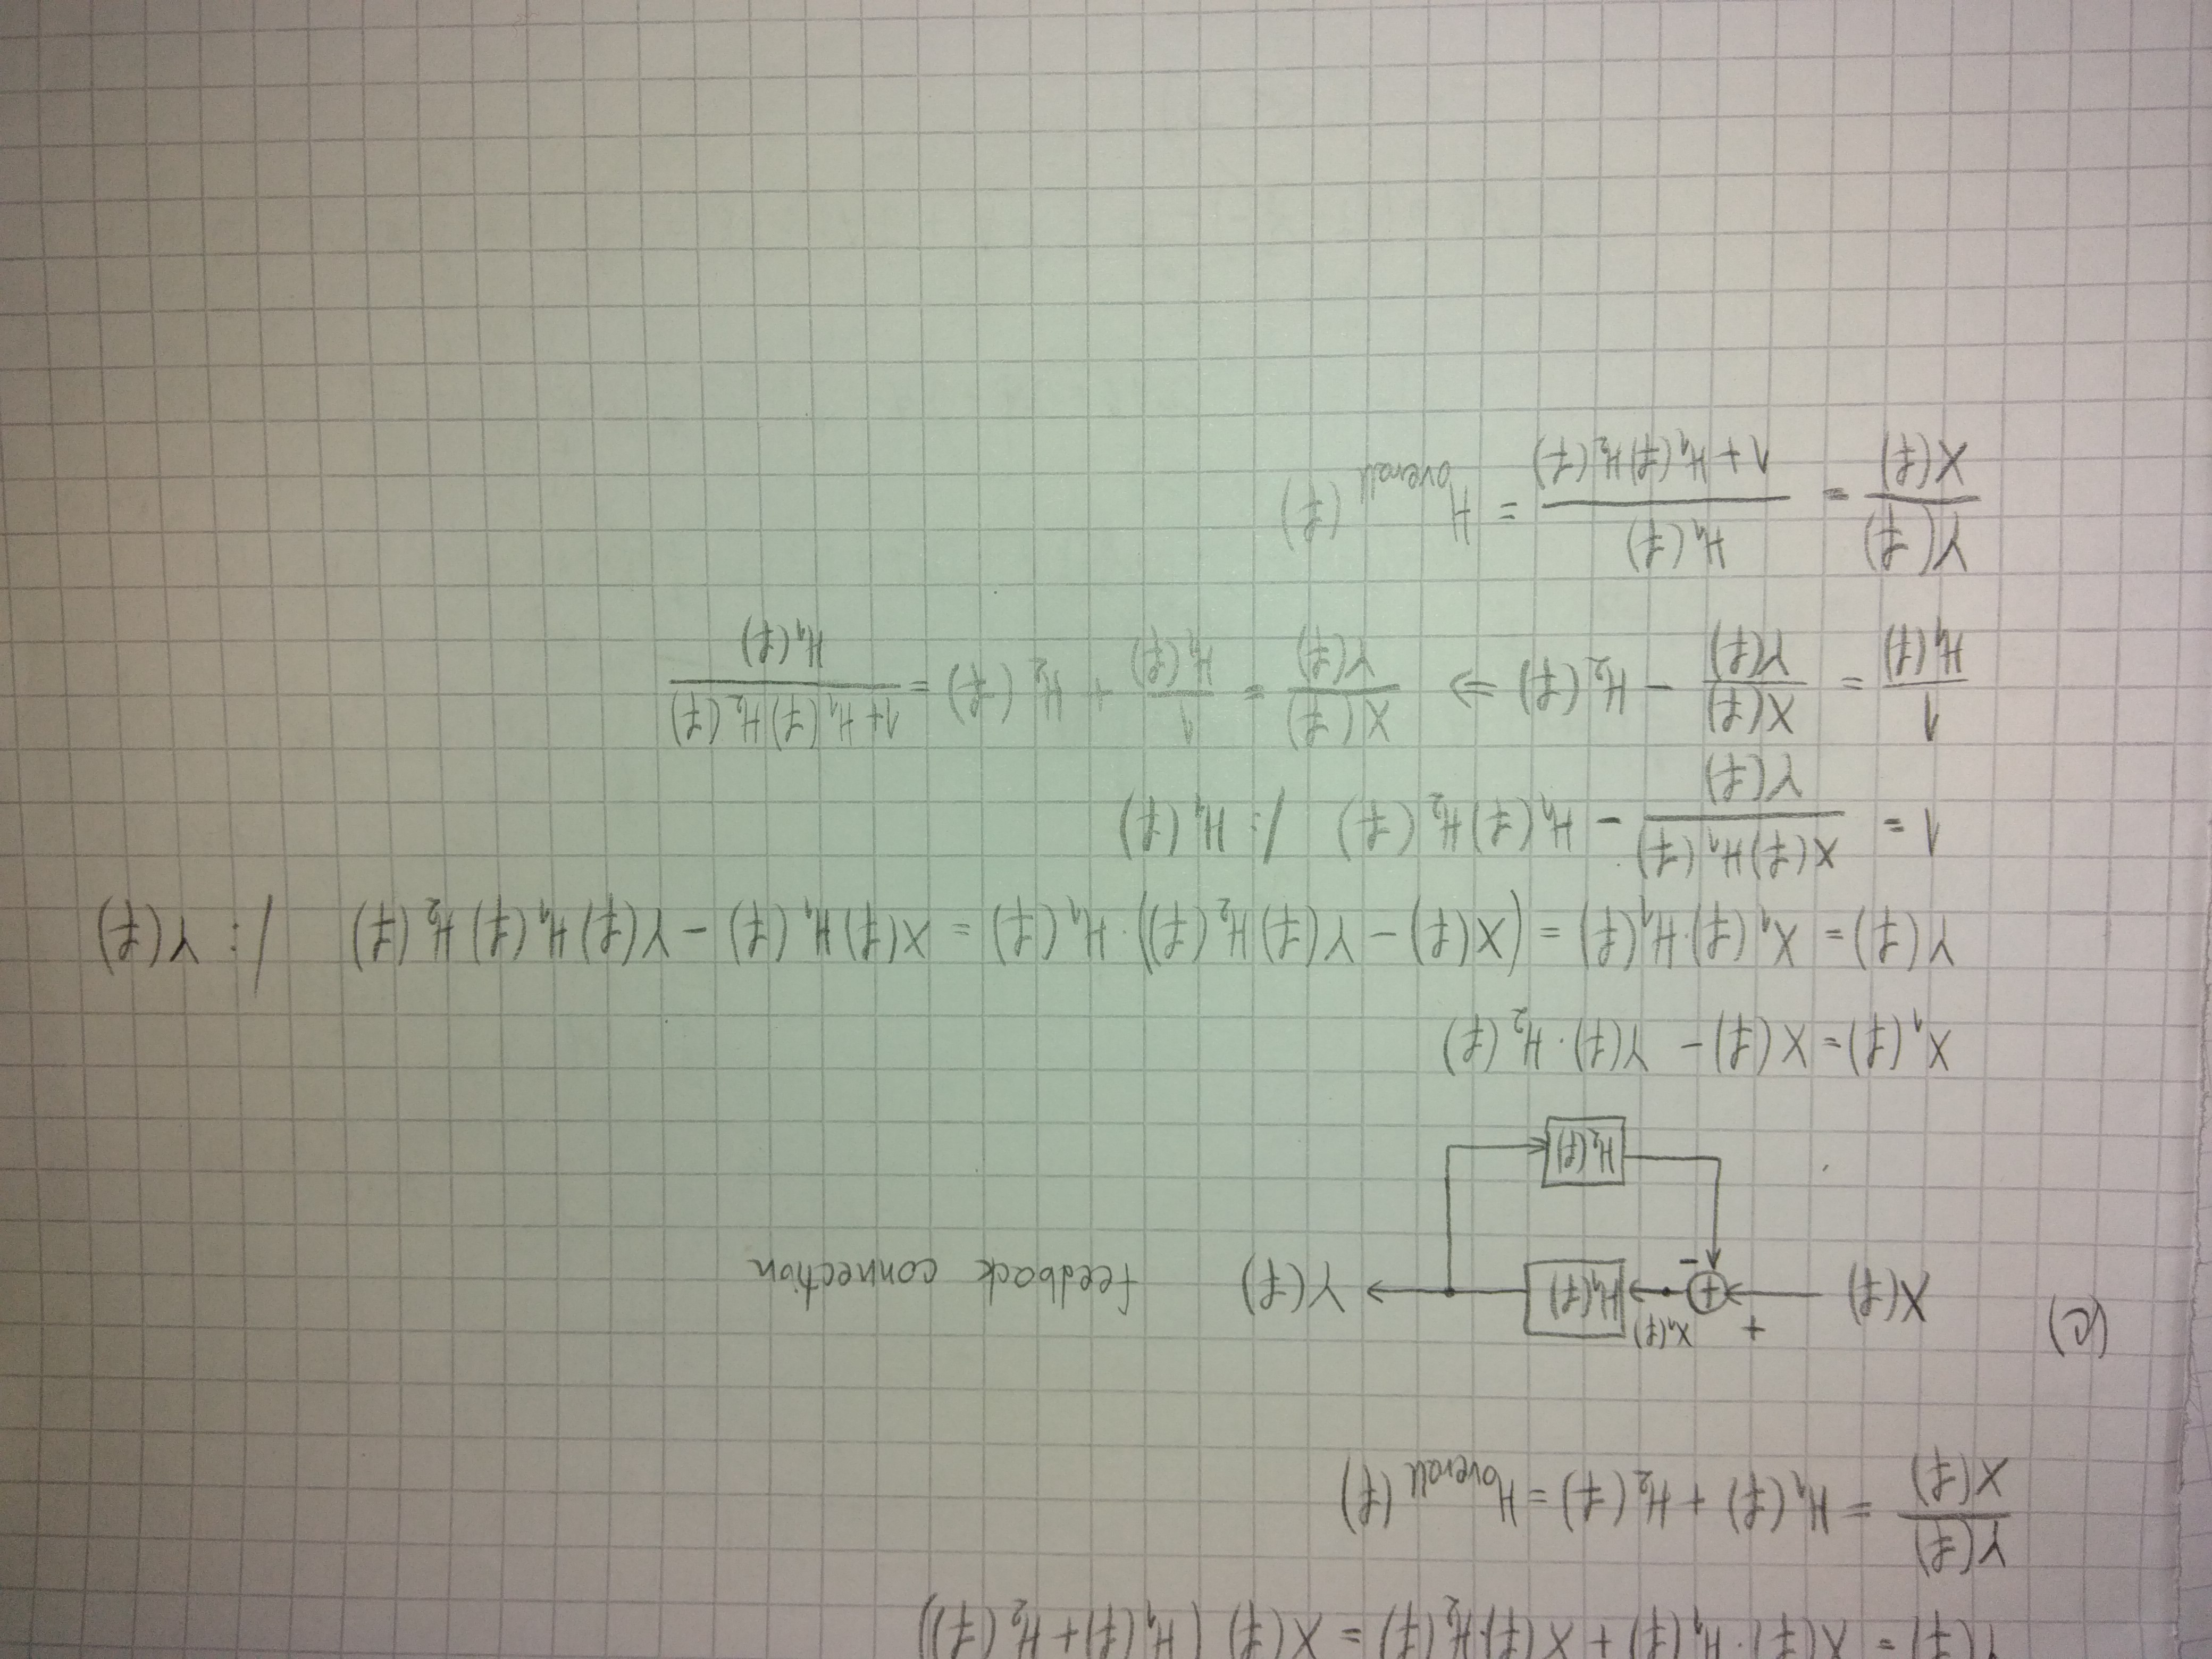 Y(f) = X(f)·H₁(f) + X(f)·H₂(f) = X(f) (H₁(f) + H₂(f))
Y(f)/X(f) = H₁(f) + H₂(f) = Hoverall (f)
(c) X(f) + - + X₁(f) H₁(f) Y(f) feedback connection
H₂(f)
X₁(f) = X(f) - Y(f)·H₂(f)
Y(f) = X₁(f)·H₁(f) = (X(f) - Y(f)H₂(f))·H₁(f) = X(f)H₁(f) - Y(f)H₁(f)H₂(f) /: Y(f)
1 = X(f)H₁(f)/Y(f) - H₁(f)H₂(f) /: H₁(f)
1/H₁(f) = X(f)/Y(f) - H₂(f) => X(f)/Y(f) = 1/H₁(f) + H₂(f) = 1+H₁(f)H₂(f)/H₁(f)
Y(f)/X(f) = H₁(f)/1+H₁(f)H₂(f) = Hoverall (f)